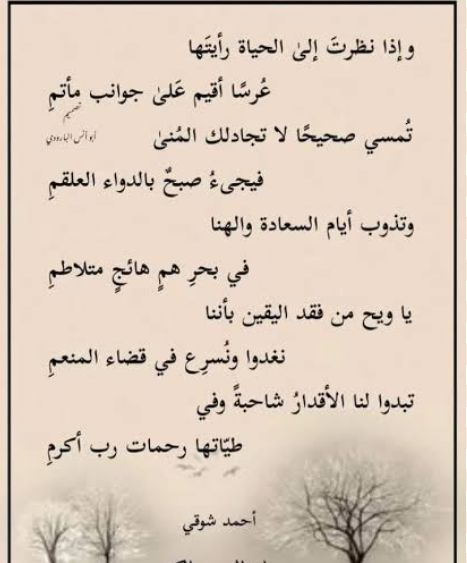 وإذا نظرتَ إلىٰ الحياة رأيتَها
عُرسًا أقيم عَلىٰ جوانب مأتمِ
تصميم
تُمسي صحيحًا لا تجادلك المُنىٰ
أبو أنس البارودي
فيجىءُ صبحٌ بالدواء العلقمِ
وتذوب أيام السعادة والهنا
في بحرِ همٍ هائجٍ متلاطمِ
يا ويح من فقد اليقين بأننا
نغدوا ونُسرِع في قضاء المنعمِ
تبدوا لنا الأقدارُ شاحبةً وفي
طيّاتها رحمات رب أكرمِ
أحمد شوقي